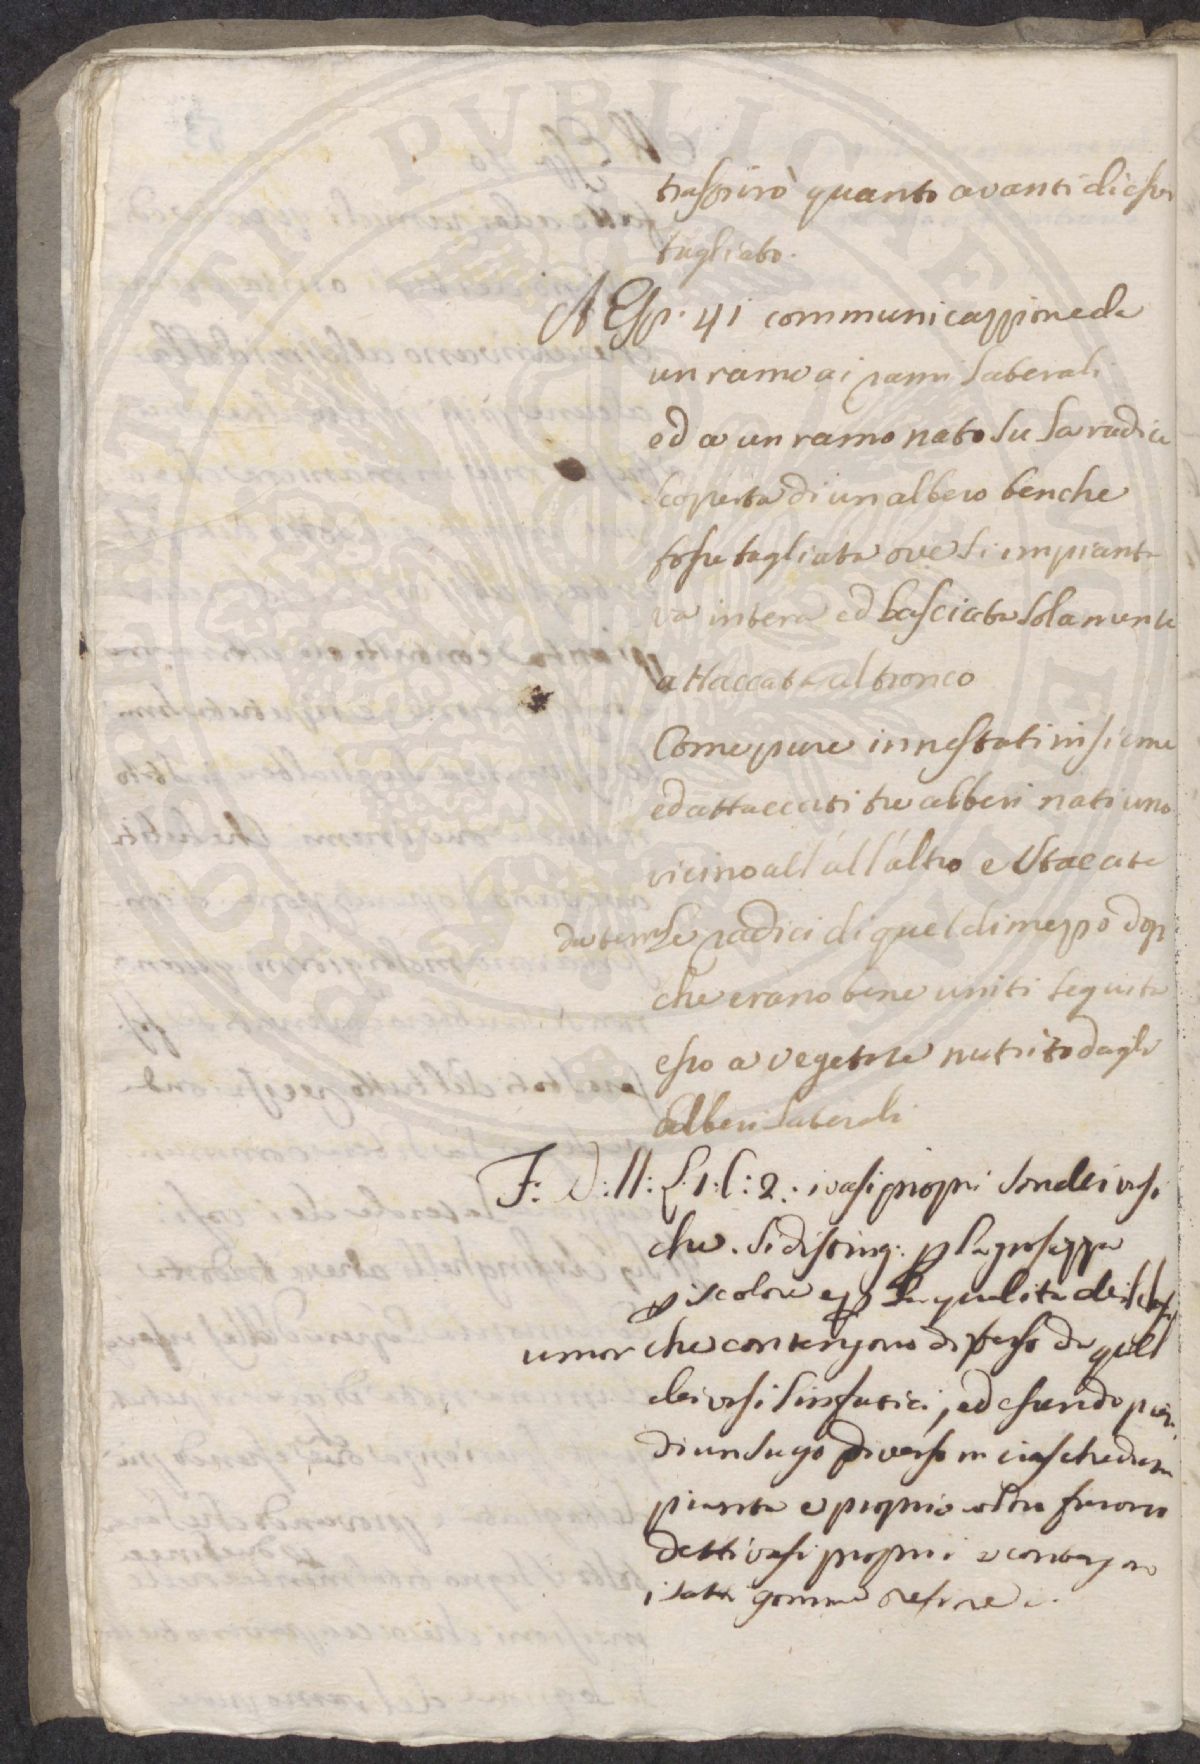 traspirò quanto avanti di esser
tagliato.
A Esp. 41 communicazzione da
un ramo ai rami laterali
ed a un ramo nato su la radice
scoperta di un albero benche
fosse tagliata ove si impianta
va intera ed lasciata solamente
attaccata al tronco
Come pure innestati insieme
ed attaccati tre alberi nati uno
vicino all' all'altro e staccate
da terra le radici di quel di mezzo dop
che erano bene uniti seguita
esso a vegetare nutrito dagli
alberi laterali
F: D: ll: l: 1: l: 2: i vasi propri son dei vasi
che si disting: p la grossezza
p il colore e p la qualita dei
umor che contengono diverso da quel
dei vasi linfatici, ed essendo pien
di un sugo diverso in ciaschedun
pianta e proprio furono
detti vasi propri e contengono
i latti gomme resine